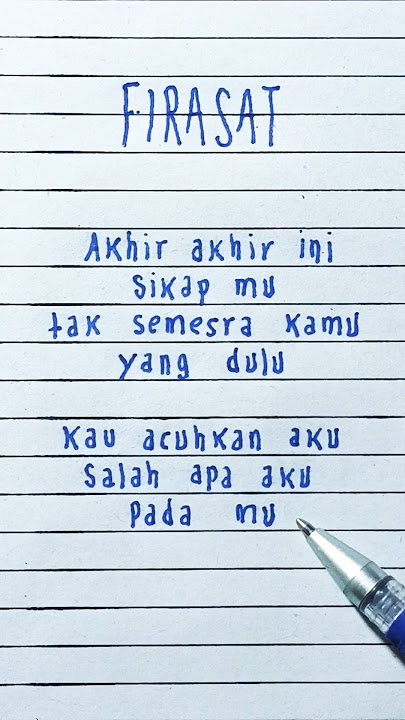 FIRASAT
Akhir akhir ini
Sikap mu
tak semesra kamu
yang dulu
Kau acuhkan aku
Salah apa aku
Pada mu